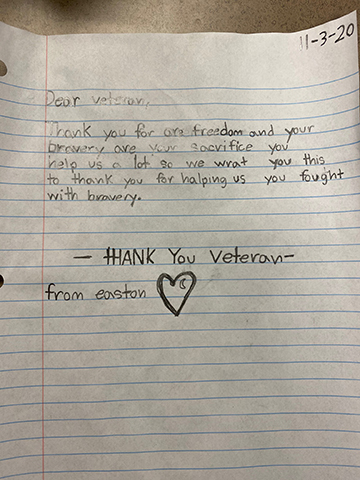 11-3-20
Dear veteran,
Thank you for are freedom and your
bravery are your sacvifice you
help us a lot so we wrat you this
to thank you for halping us you fought
with bravery.
— THANK You Veteran-
from easton